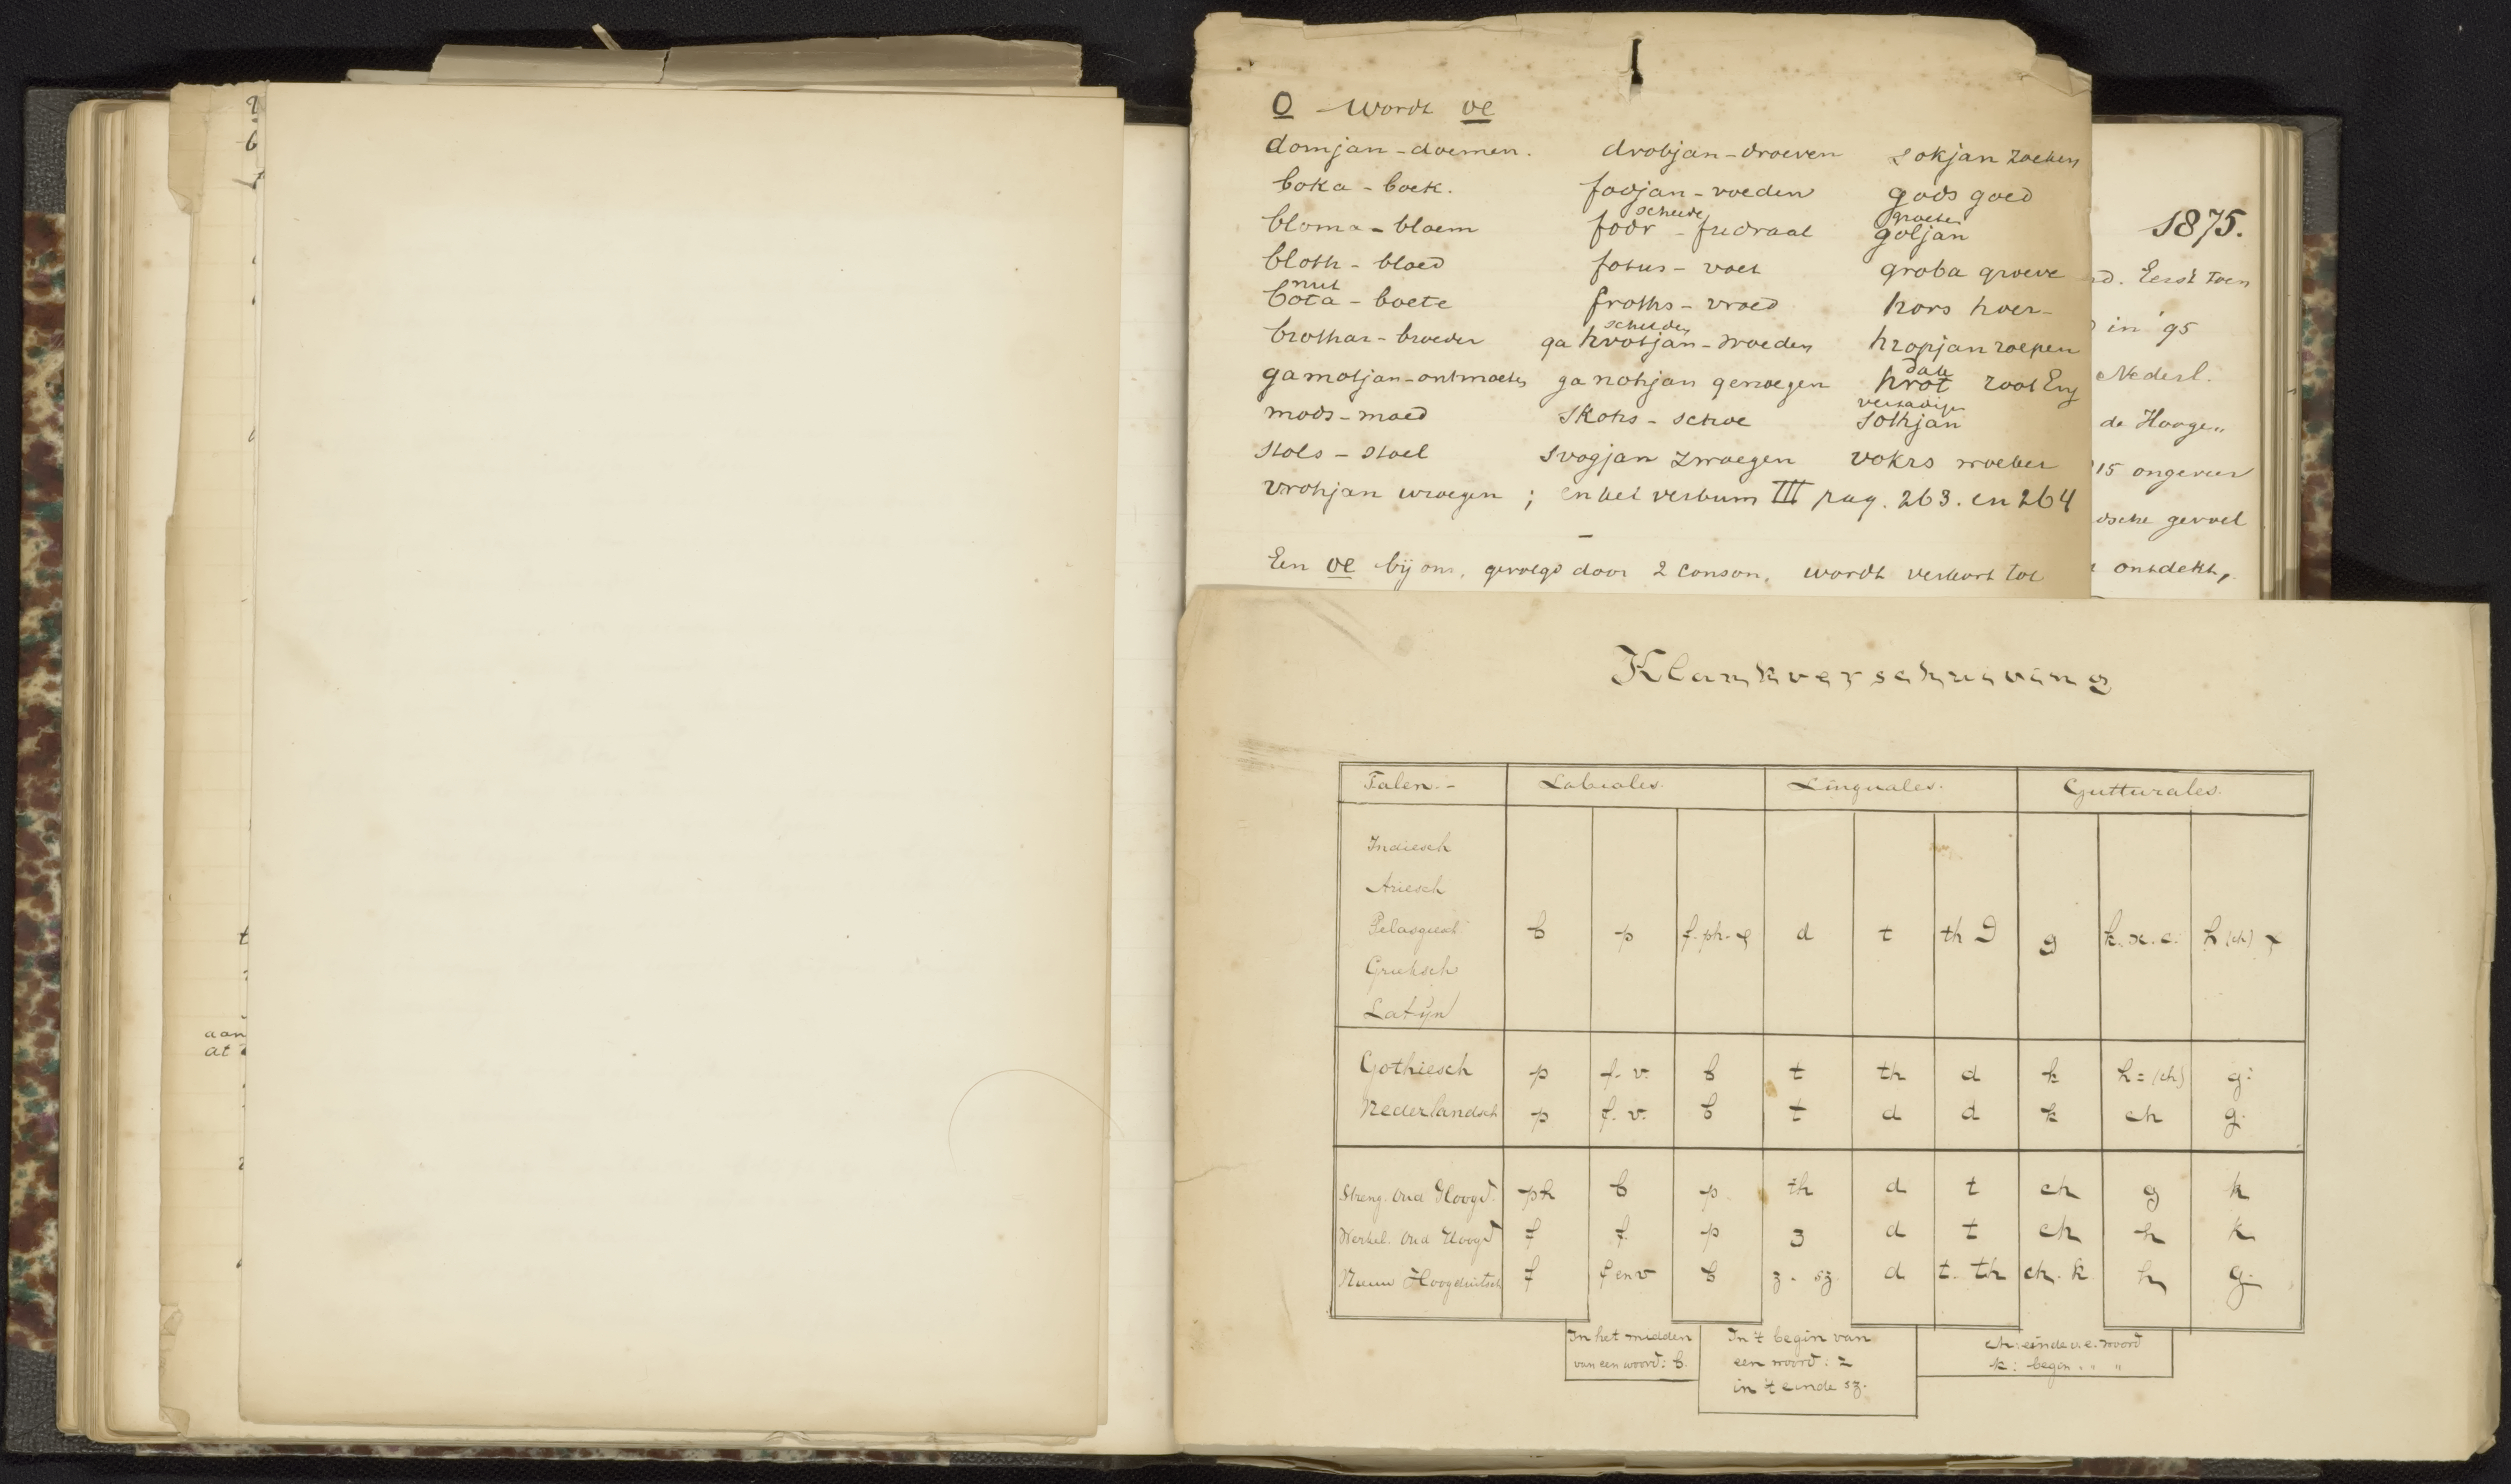 O wordt oe
domjan - doemen. drobjan - droeven sokjan zoeken
boka - boek. fodjan - voeden gods goed
bloma - bloem scheede fodr - fudraal groeten goljan
bloth - bloed fotus - voet groba groeve
nut bota - boete froths - vroed hors hoer
brothar - broeder ga hvotjan - woeden hropjan roepen
gamotjan - ontmoeten ganohjan genoegen hrot roof Eng
mods - moed skohs - schoe verzadigen sothjan
stols - stoel svogjan zwoegen vokrs woeker
vrohjan wroegen ; en het verbum III pag. 263. en 264
Een oe bij ons, gevolgd door 2 conson, wordt verkort tot
1875.
Eerst toen
in '95
Nederl.
de Hooge„
15 ongeveer
dsche gevoel
ontdekt,
aan
at
Klankverschuiving
Talen. - Labiales. Linguales. Gutturales.
Indiesch
Ariesch
Pelasgiesch b p f. ph. φ d t th ϑ g k. x. c. h (ch) χ
Grieksch
Latijn
Gothiesch p f. v. b t th d k h = (ch) g.
Nederlandsch p f. v. b t d d k ch g.
Streng. Oud Hoogd. ph b p th d t ch g k
Werkel. Oud Hoogd f f p z d t ch h k
Nieuw Hoogduitsch f f en v b z. sz. d t. th ch. k h g.
In het midden
van een woord: b.
In 't begin van
een woord: z
in 't einde sz.
ch: einde v.e. woord
k: begin „ „ „